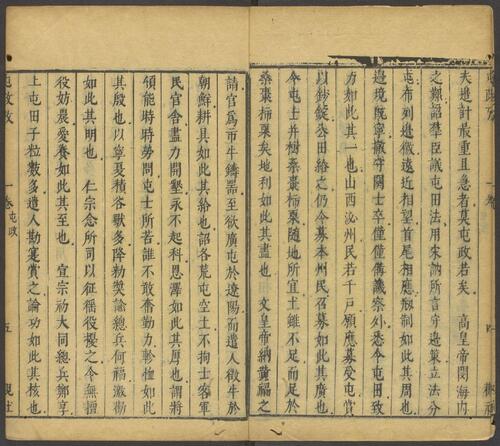 夫邊計最重且急者莫屯政若矣　高皇帝閱海內
之艱詔羣臣議屯田法用宋訥所言守邊策立法分
屯布列邊徼遠近相望首尾相應制如此其周也
邊境既寧撤守關士卒僅僅備譏察外悉令屯田致
力如此其一也山西沁州民若千戶願應募受屯賞
以鈔錠分田給之仍令募本州民召募如此其廣也
今屯士並樹桑棗柿栗隨地所宜土雖不足而足於
桑棗柿栗矣地利如此其盡也　文皇帝納黃福之
請官為市牛鑄器至欲廣屯於遼陽而遣人徵牛於
朝鮮耕具如此其給也詔各荒屯空土不拘士客軍
民官舍盡力開墾永不起科恩澤如此其厚也謂將
領能時時勞問屯士所苦誰不敢奮勤力軫恤如此
其殷也以寧夏積谷獸多降勑獎諭總兵何福激勸
如此其明也　仁宗念所司以征徭役擾之令無擅
役妨農愛養如此其至也　宣宗初大同總兵鄭亨
上屯田子粒數多遣人勘寔賞之論功如此其核也
屯政攷　一卷　屯政　五